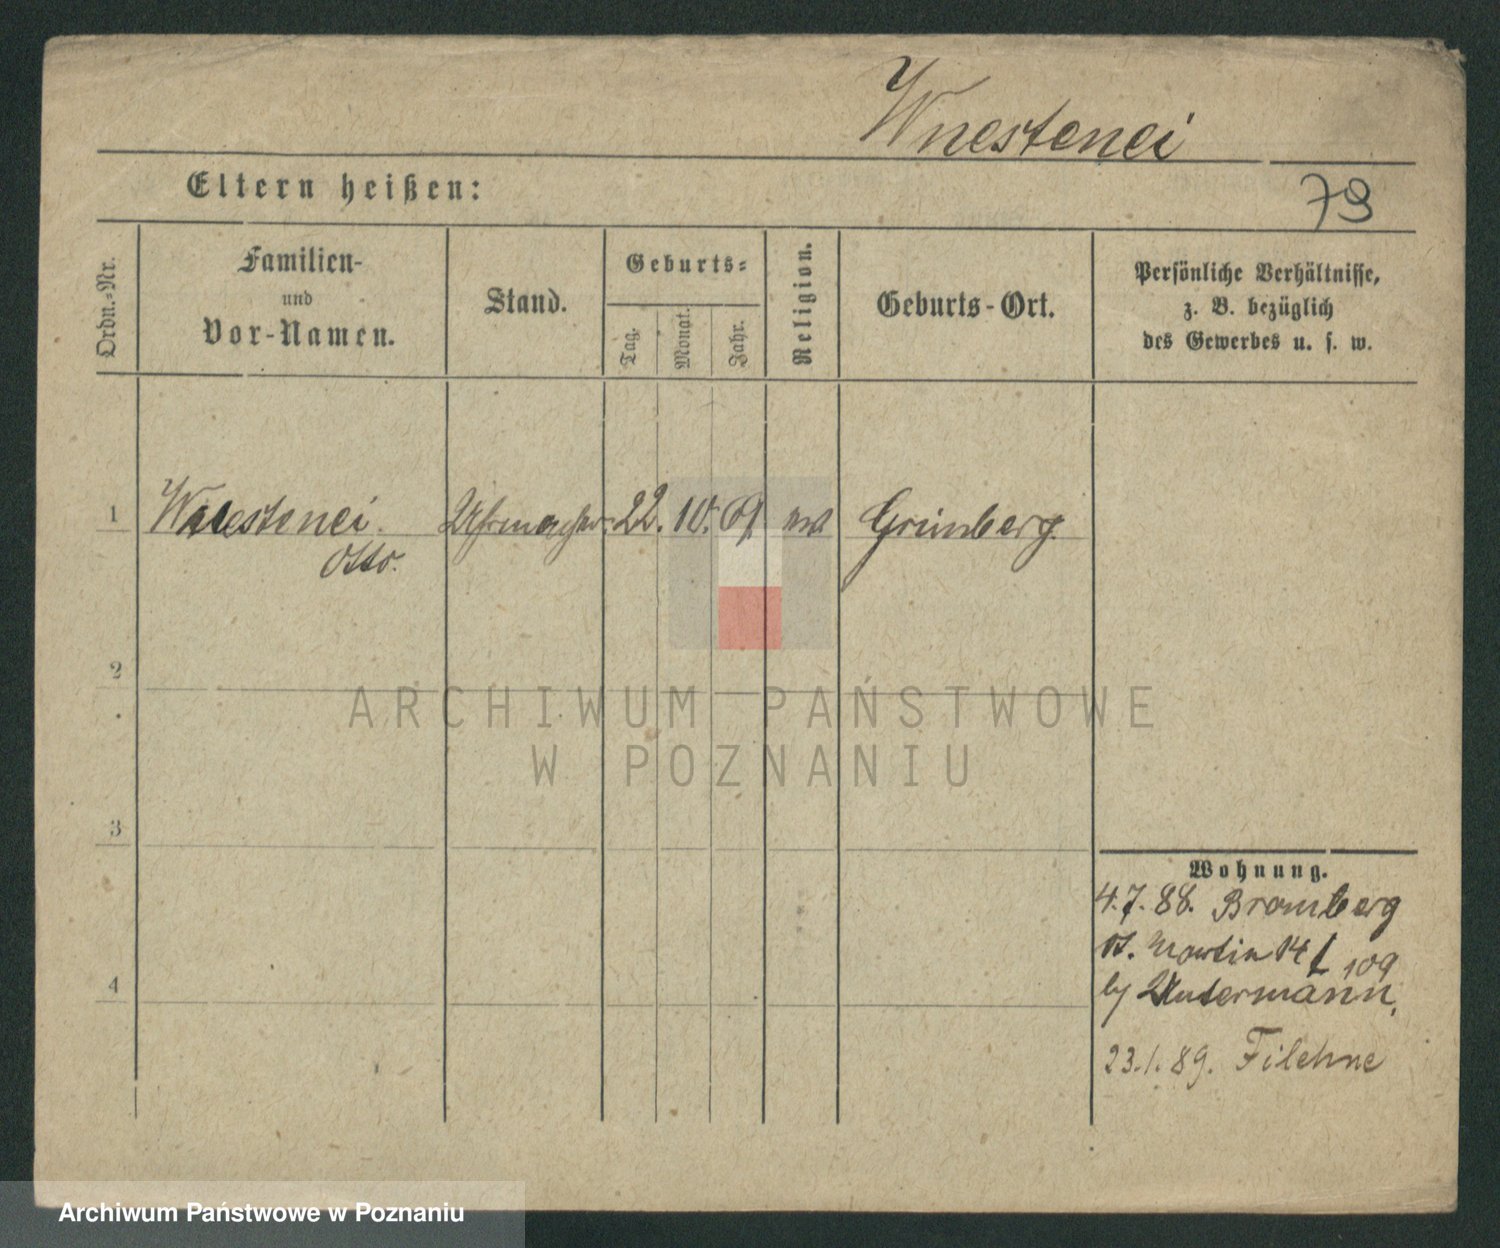 Wnestenei
Eltern heißen:
79
Ordn.-Nr.
Familien-
und
Vor-Namen.
Stand.
Geburts-
Tag.
Monat.
Jahr.
Religion.
Geburts-Ort.
Persönliche Verhältnisse,
z. B. bezüglich
des Gewerbes u. s. w.
1 Wnestenei Uhrmacher 22. 10. 69 Grünberg.
Otto.
2
ARCHIWUM PAŃSTWOWE
W POZNANIU
3
4
Wohnung.
4.7.88. Bromberg
St. Martin 14
109
by Untermann,
23.1.89. Filehne
Archiwum Państwowe w Poznaniu